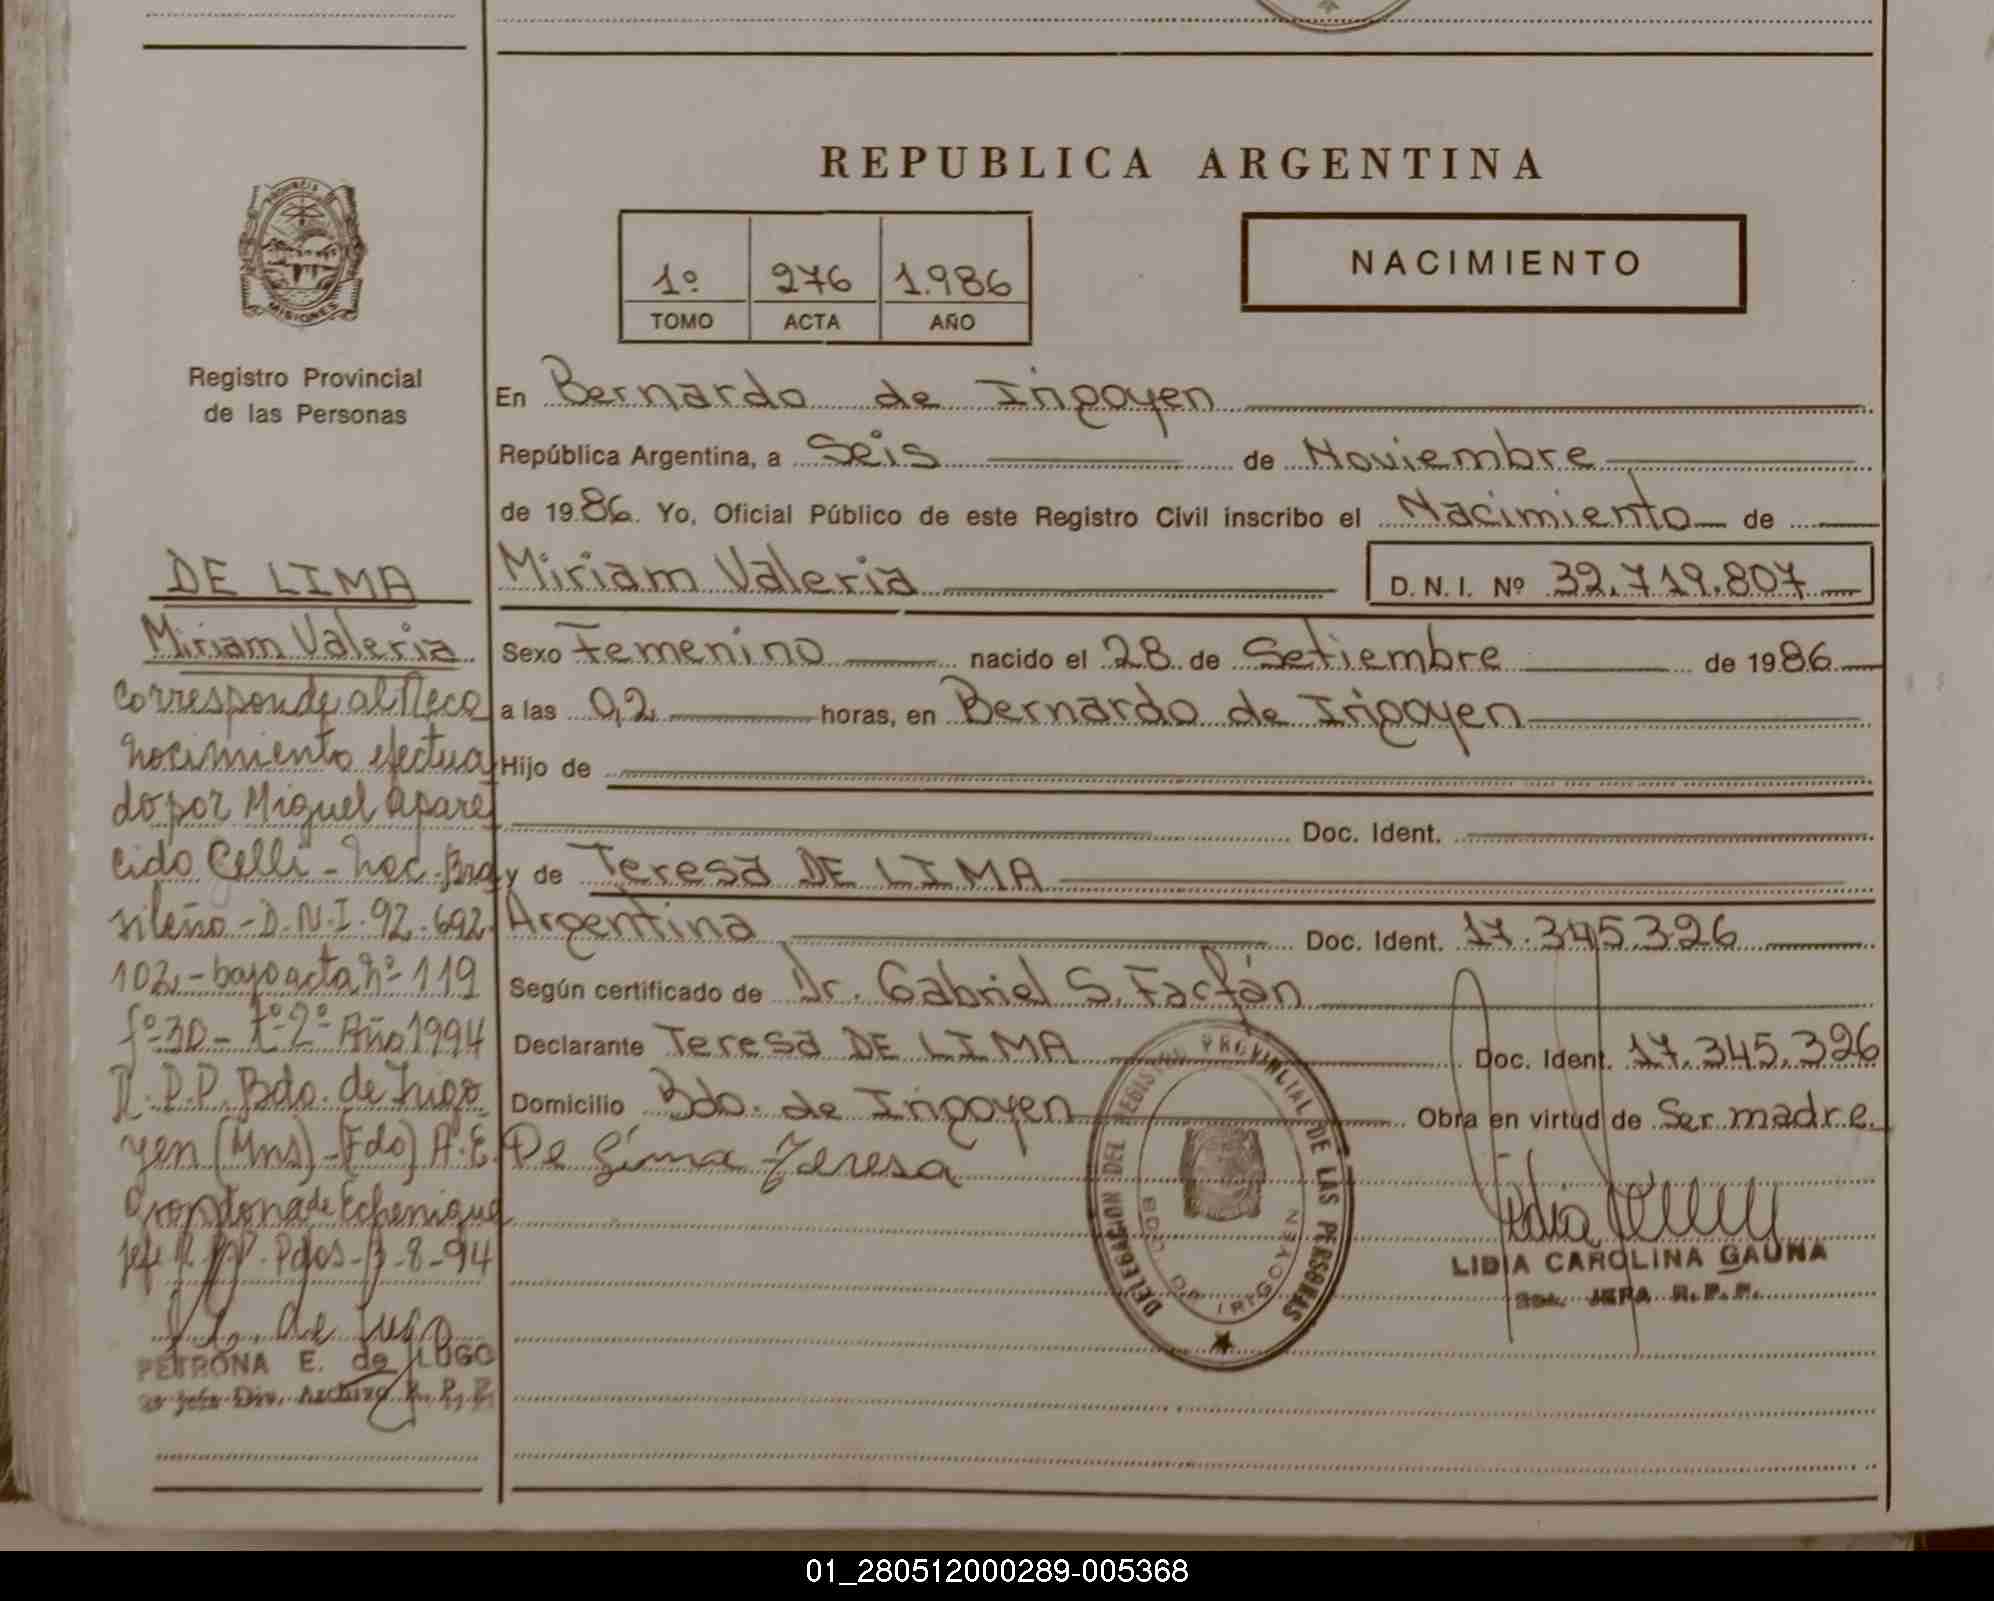 REPUBLICA ARGENTINA
1º 276 1.986
TOMO ACTA AÑO
NACIMIENTO
PROVINCIA
MISIONES
Registro Provincial
de las Personas
En Bernardo de Irigoyen
República Argentina, a Seis de Noviembre
de 1986. Yo, Oficial Público de este Registro Civil inscribo el Nacimiento de
Miriam Valeria D.N.I. Nº 32.719.807
Sexo Femenino nacido el 28 de Setiembre de 1986
a las 02 horas, en Bernardo de Irigoyen
Hijo de
Doc. Ident.
y de Teresa DE LIMA
Argentina Doc. Ident. 17.345.326
Según certificado de Dr. Gabriel S. Farfán
Declarante Teresa DE LIMA Doc. Ident. 17.345.326
Domicilio Bdo. de Irigoyen Obra en virtud de Ser madre.
De Lima Teresa
DELEGACION DEL REGISTRO PROVINCIAL DE LAS PERSONAS
BDO DE IRIGOYEN
LIDIA CAROLINA GAUNA
JEFA R.P.P.
DE LIMA
Miriam Valeria
Corresponde al Reco
nocimiento efectua
do por Miguel Apare
cido Celli - Nac. Bra
sileño - D.N.I. 92.692.
102 - bajo acta Nº 119
fº 30 - tº 2º Año 1994
R.P.P. Bdo. de Irigo
yen (Mns) - (Fdo) A.E.
de Echenique
Jefe R.P.P. Pdas - 3-8-94
PETRONA E. de LUGO
Jefe Div. Archivo R.P.P.
01_280512000289-005368